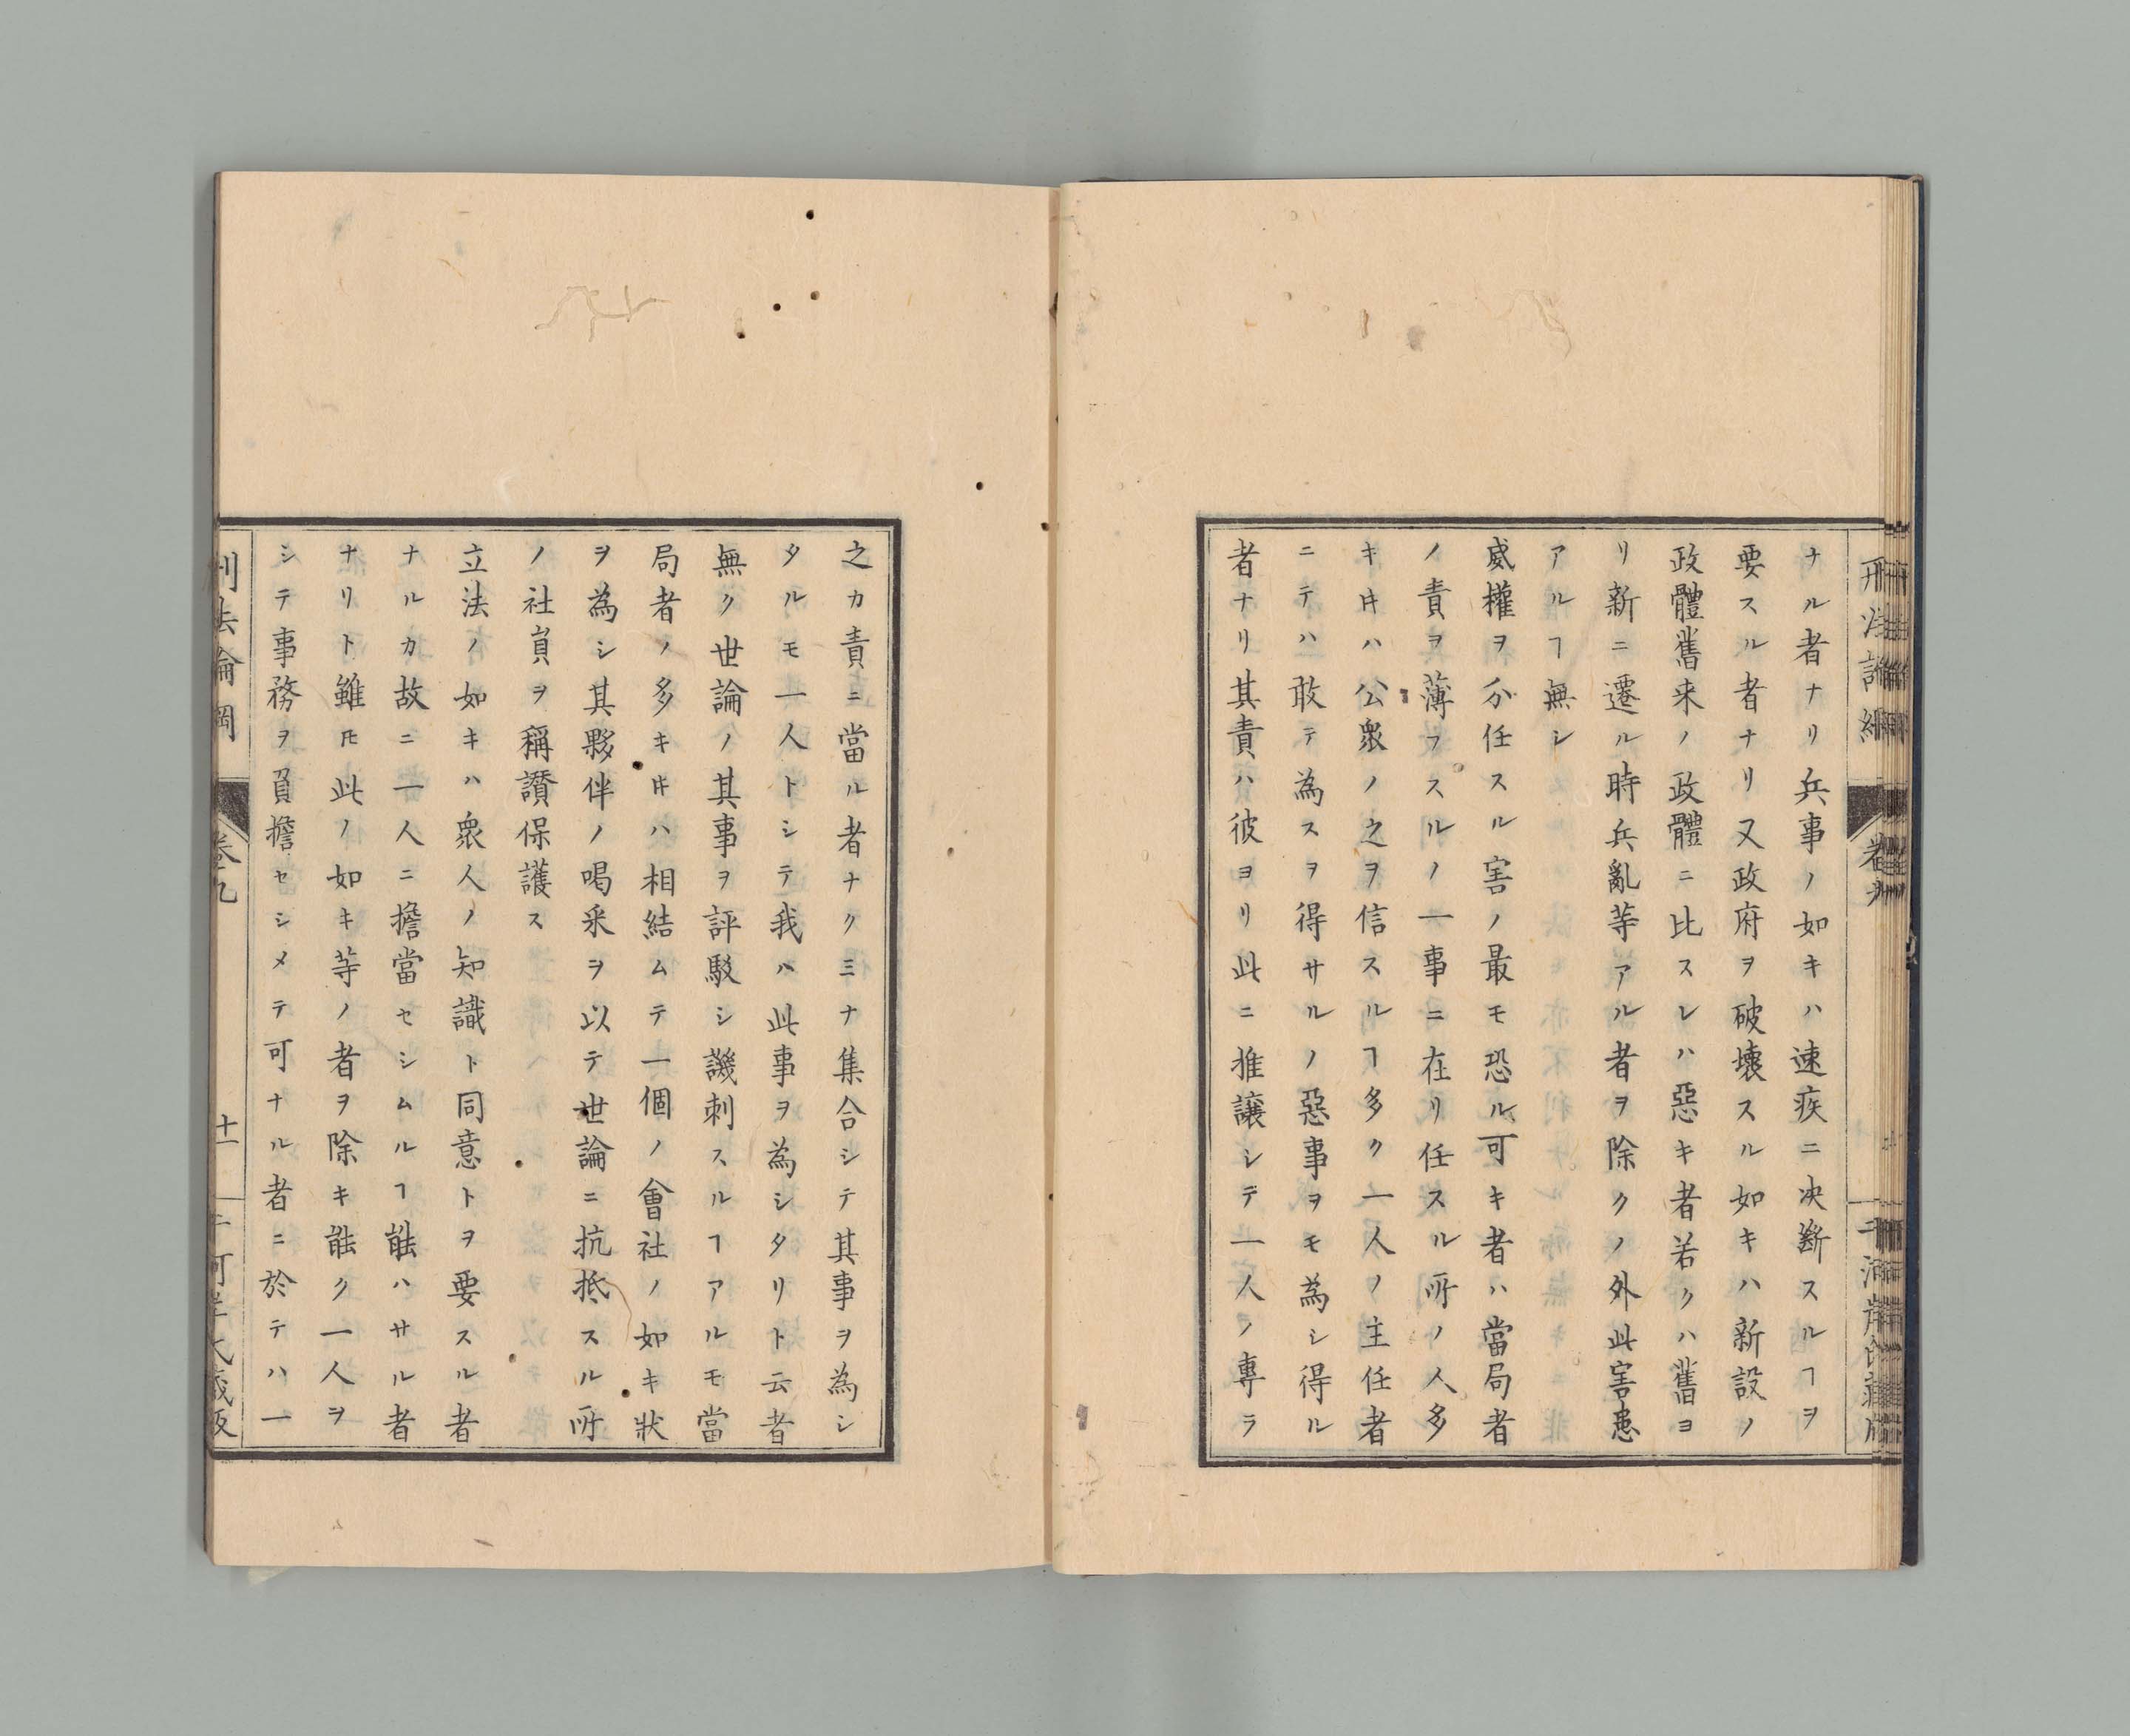 ナル者ナリ兵事ノ如キハ速疾ニ决斷スルヿヲ
要スル者ナリ又政府ヲ破壊スル如キハ新設ノ
政體舊来ノ政體ニ比スレハ惡キ者若クハ舊ヨ
リ新ニ遷ル時兵亂等アル者ヲ除クノ外此害患
アルヿ無シ
威權ヲ分任スル害ノ最モ恐ル可キ者ハ當局者
ノ責ヲ薄フスルノ一事ニ在リ任スル所ノ人多
キ𪜈ハ公衆ノ之ヲ信スルヿ多ク一人ノ主任者
ニテハ敢テ為スヲ得サルノ惡事ヲモ為シ得ル
者ナリ其責ハ彼ヨリ此ニ推譲シテ一人ノ專ラ
之カ責ニ當ル者ナク三ナ集合シテ其事ヲ為シ
タルモ一人トシテ我ハ此事ヲ為シタリト云者
無ク世論ノ其事ヲ評駁シ譏刺スルヿアルモ當
局者ノ多キ𪜈ハ相結ムテ一個ノ會社ノ如キ狀
ヲ為シ其夥伴ノ喝采ヲ以テ世論ニ抗抵スル所
ノ社員ヲ稱讃保護ス
立法ノ如キハ衆人ノ知識ト同意トヲ要スル者
ナルカ故ニ一人ニ擔當セシムルヿ能ハサル者
ナリト雖𪜈此ノ如キ等ノ者ヲ除キ能ク一人ヲ
シテ事務ヲ負擔セシメテ可ナル者ニ於テハ一
刑法論綱
卷九
十一